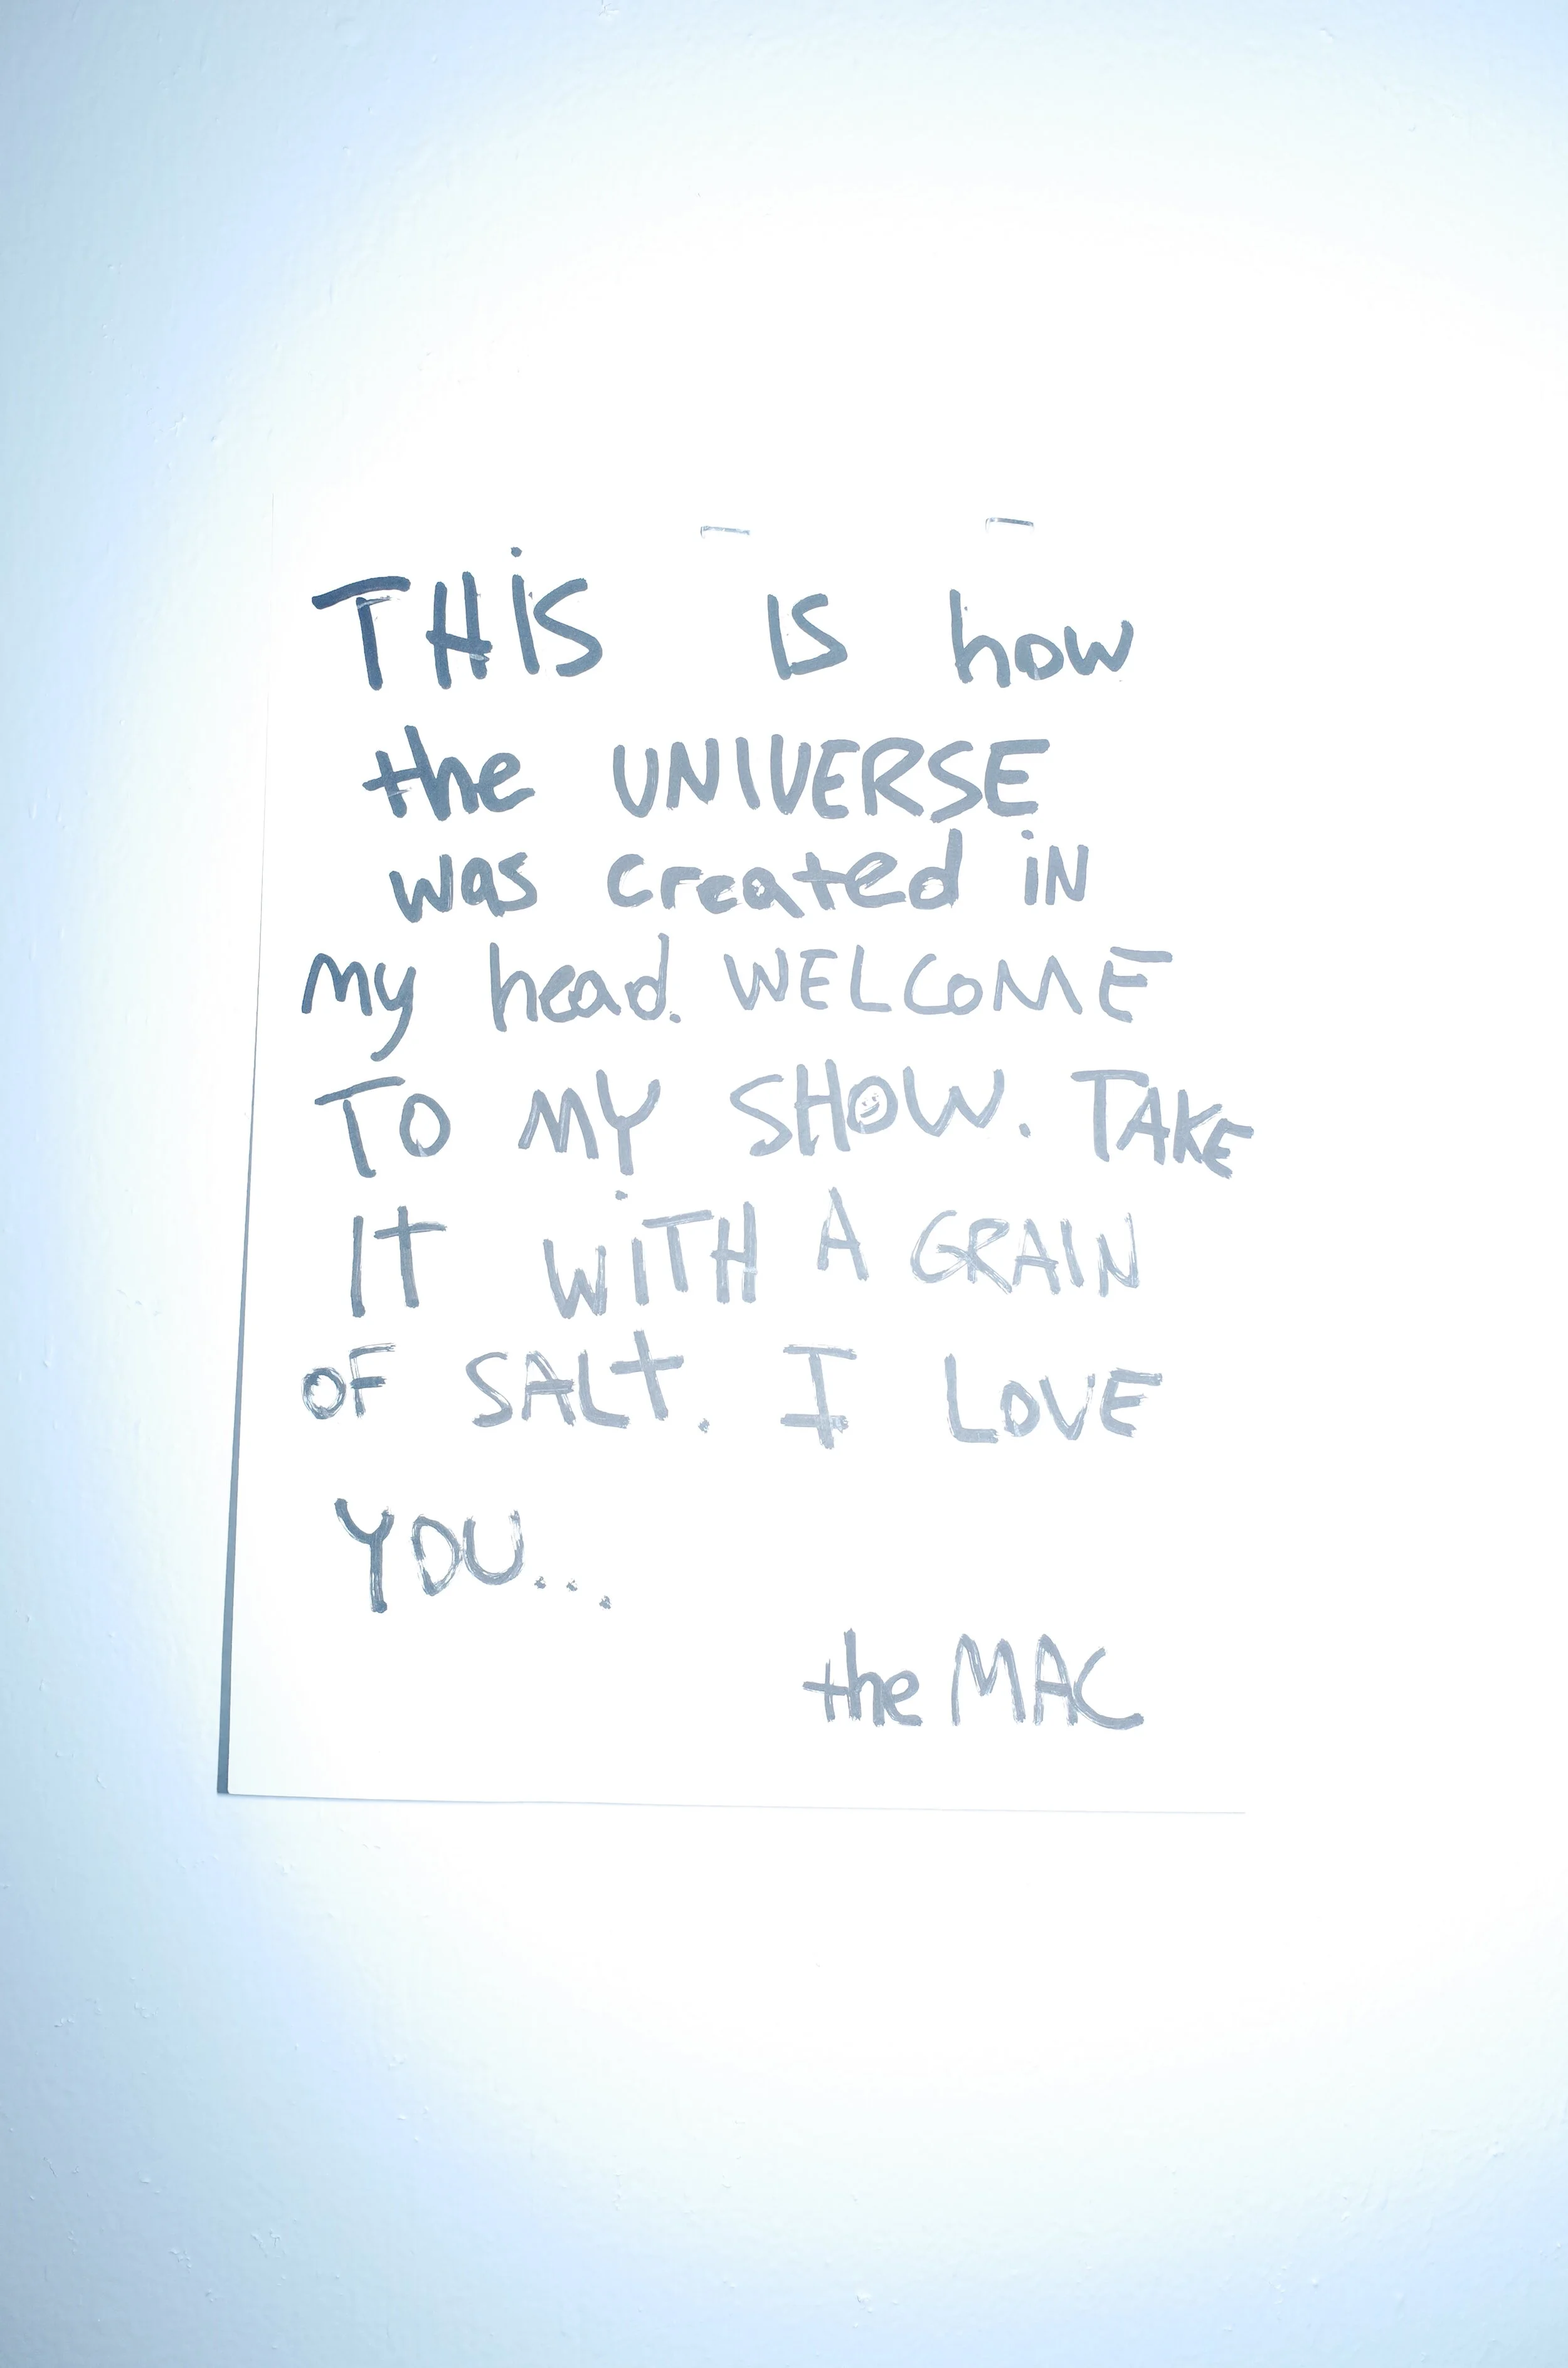 THiS IS how
the UNIVERSE
was created iN
my head. WELCOME
TO MY SHOW. TAKE
IT WiTH A GRAIN
OF SALT. I LOVE
YOU...
the MAC